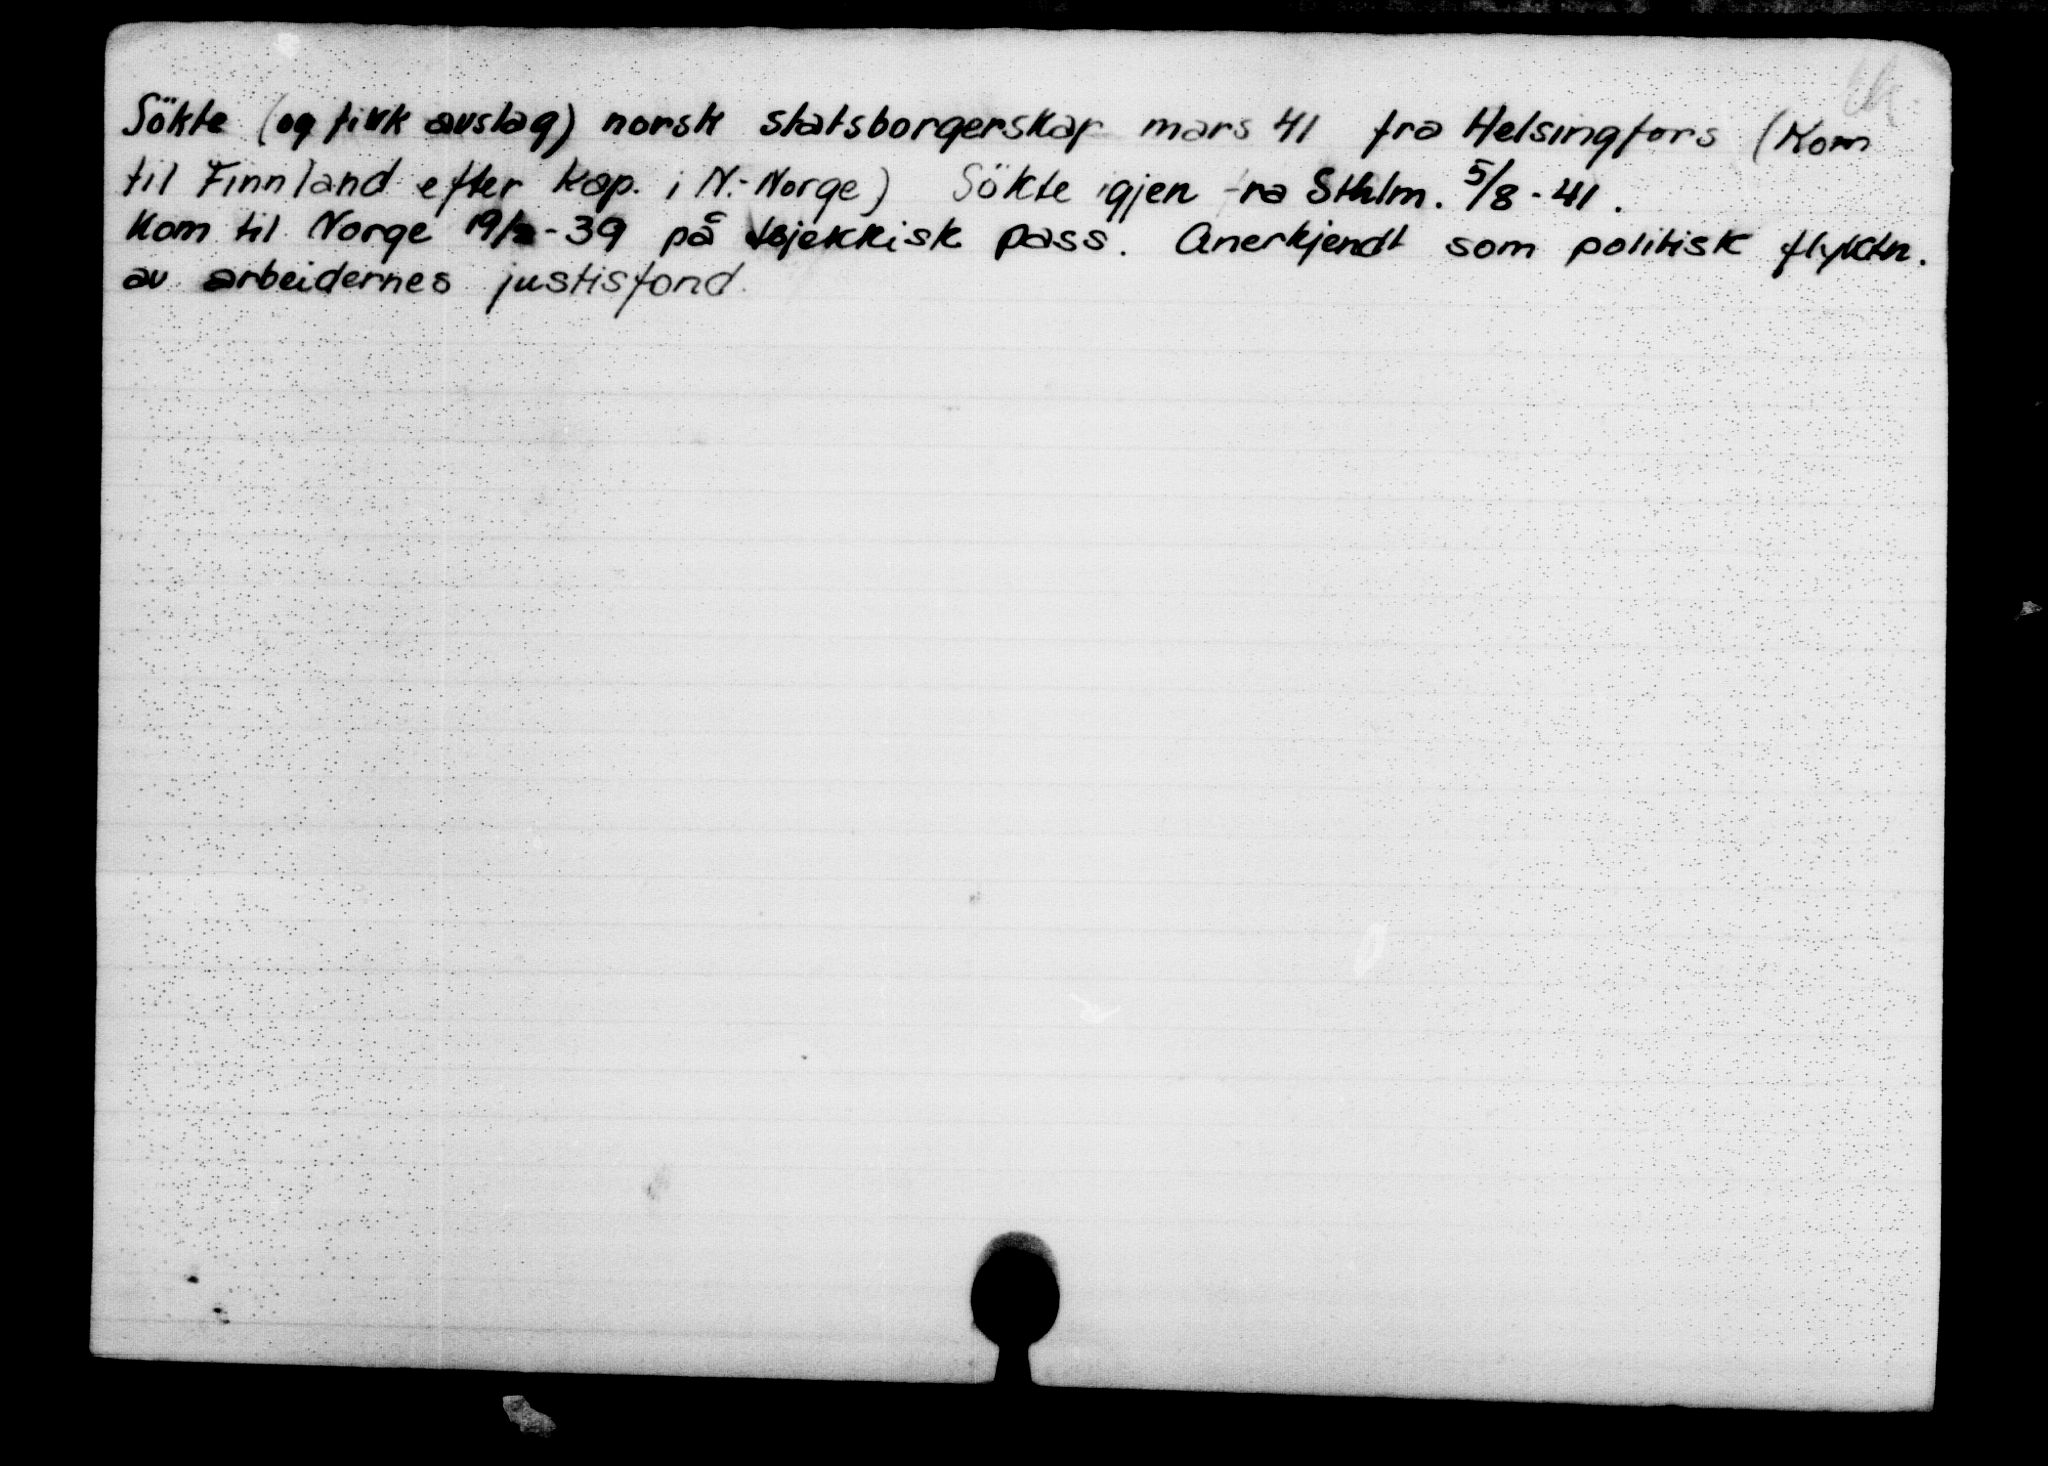 Sökte (og fikk avslag) norsk statsborgerskap mars 41 fra Helsingfors (Kom
til Finnland efter kap. i N.-Norge) Sökte igjen fra Sthlm. 5/8 - 41.
Kom til Norge -39 på tsjekkisk pass. Anerkjendt som politisk flyktn.
av arbeidernes justisfond.